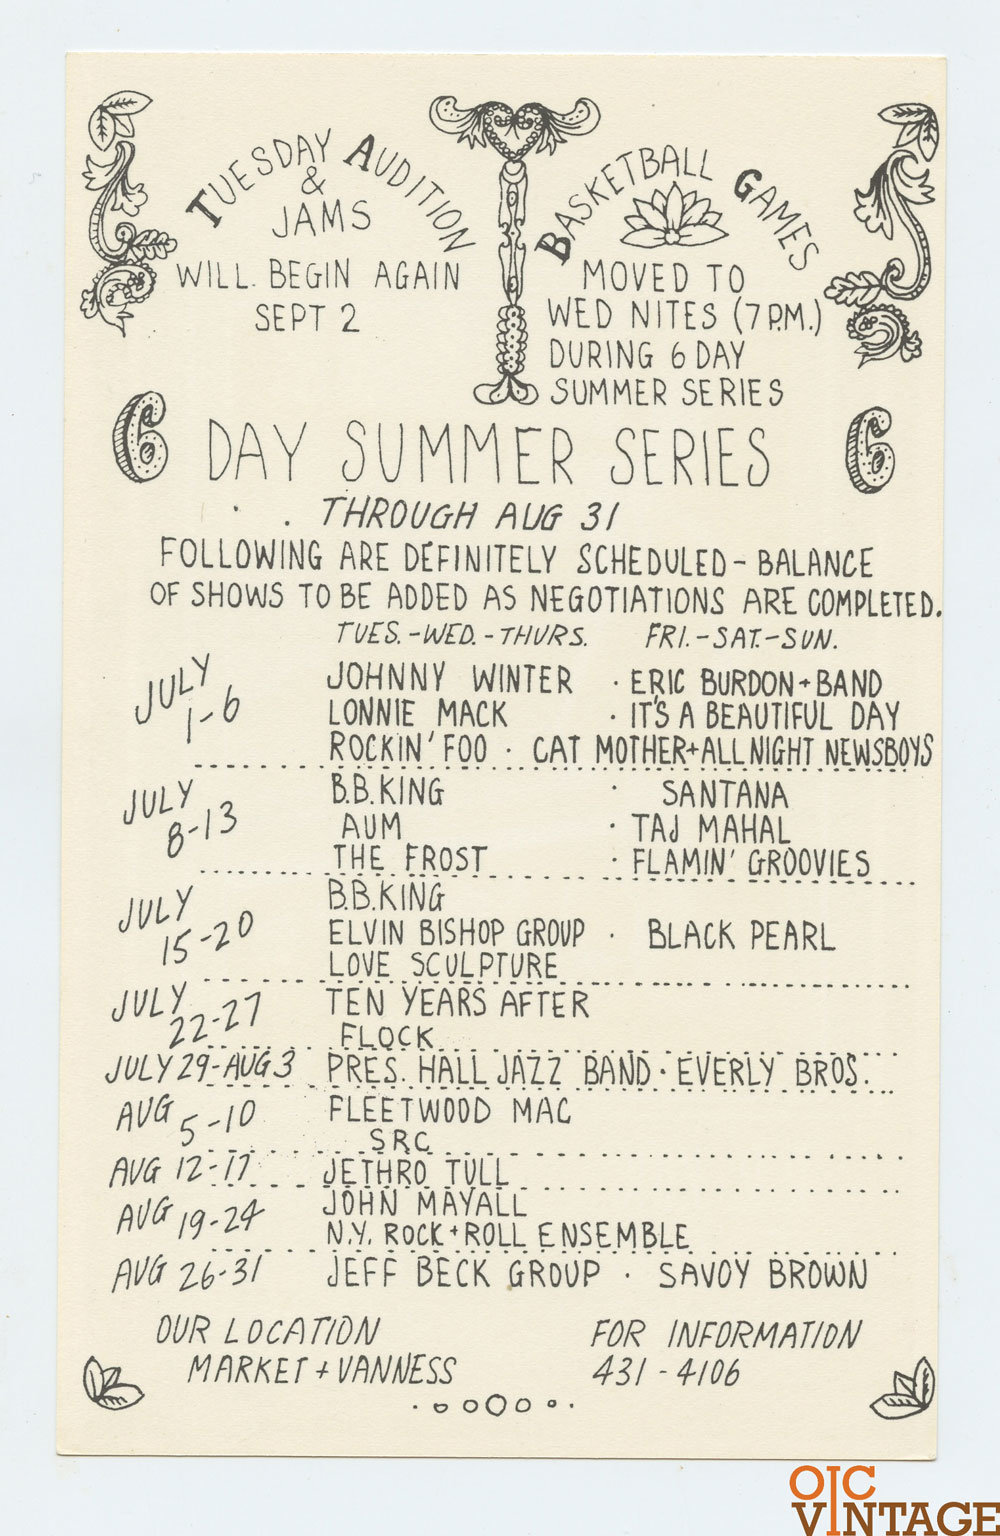 TUESDAY AUDITION
&
JAMS
WILL BEGIN AGAIN
SEPT 2
BASKETBALL GAMES
MOVED TO
WED NITES (7 P.M.)
DURING 6 DAY
SUMMER SERIES
6 DAY SUMMER SERIES 6
THROUGH AUG 31
FOLLOWING ARE DEFINITELY SCHEDULED - BALANCE
OF SHOWS TO BE ADDED AS NEGOTIATIONS ARE COMPLETED.
TUES.-WED.-THURS. FRI.-SAT.-SUN.
JULY 1-6
JOHNNY WINTER · ERIC BURDON + BAND
LONNIE MACK · IT'S A BEAUTIFUL DAY
ROCKIN' FOO · CAT MOTHER + ALL NIGHT NEWSBOYS
JULY 8-13
B.B. KING · SANTANA
AUM · TAJ MAHAL
THE FROST · FLAMIN' GROOVIES
JULY 15-20
B.B. KING
ELVIN BISHOP GROUP · BLACK PEARL
LOVE SCULPTURE
JULY 22-27
TEN YEARS AFTER
FLOCK
JULY 29-AUG 3 PRES. HALL JAZZ BAND · EVERLY BROS.
AUG 5-10
FLEETWOOD MAC
SRC
AUG 12-17 JETHRO TULL
AUG 19-24
JOHN MAYALL
N.Y. ROCK + ROLL ENSEMBLE
AUG 26-31 JEFF BECK GROUP · SAVOY BROWN
OUR LOCATION
MARKET + VANNESS
FOR INFORMATION
431-4106
OIC
VINTAGE